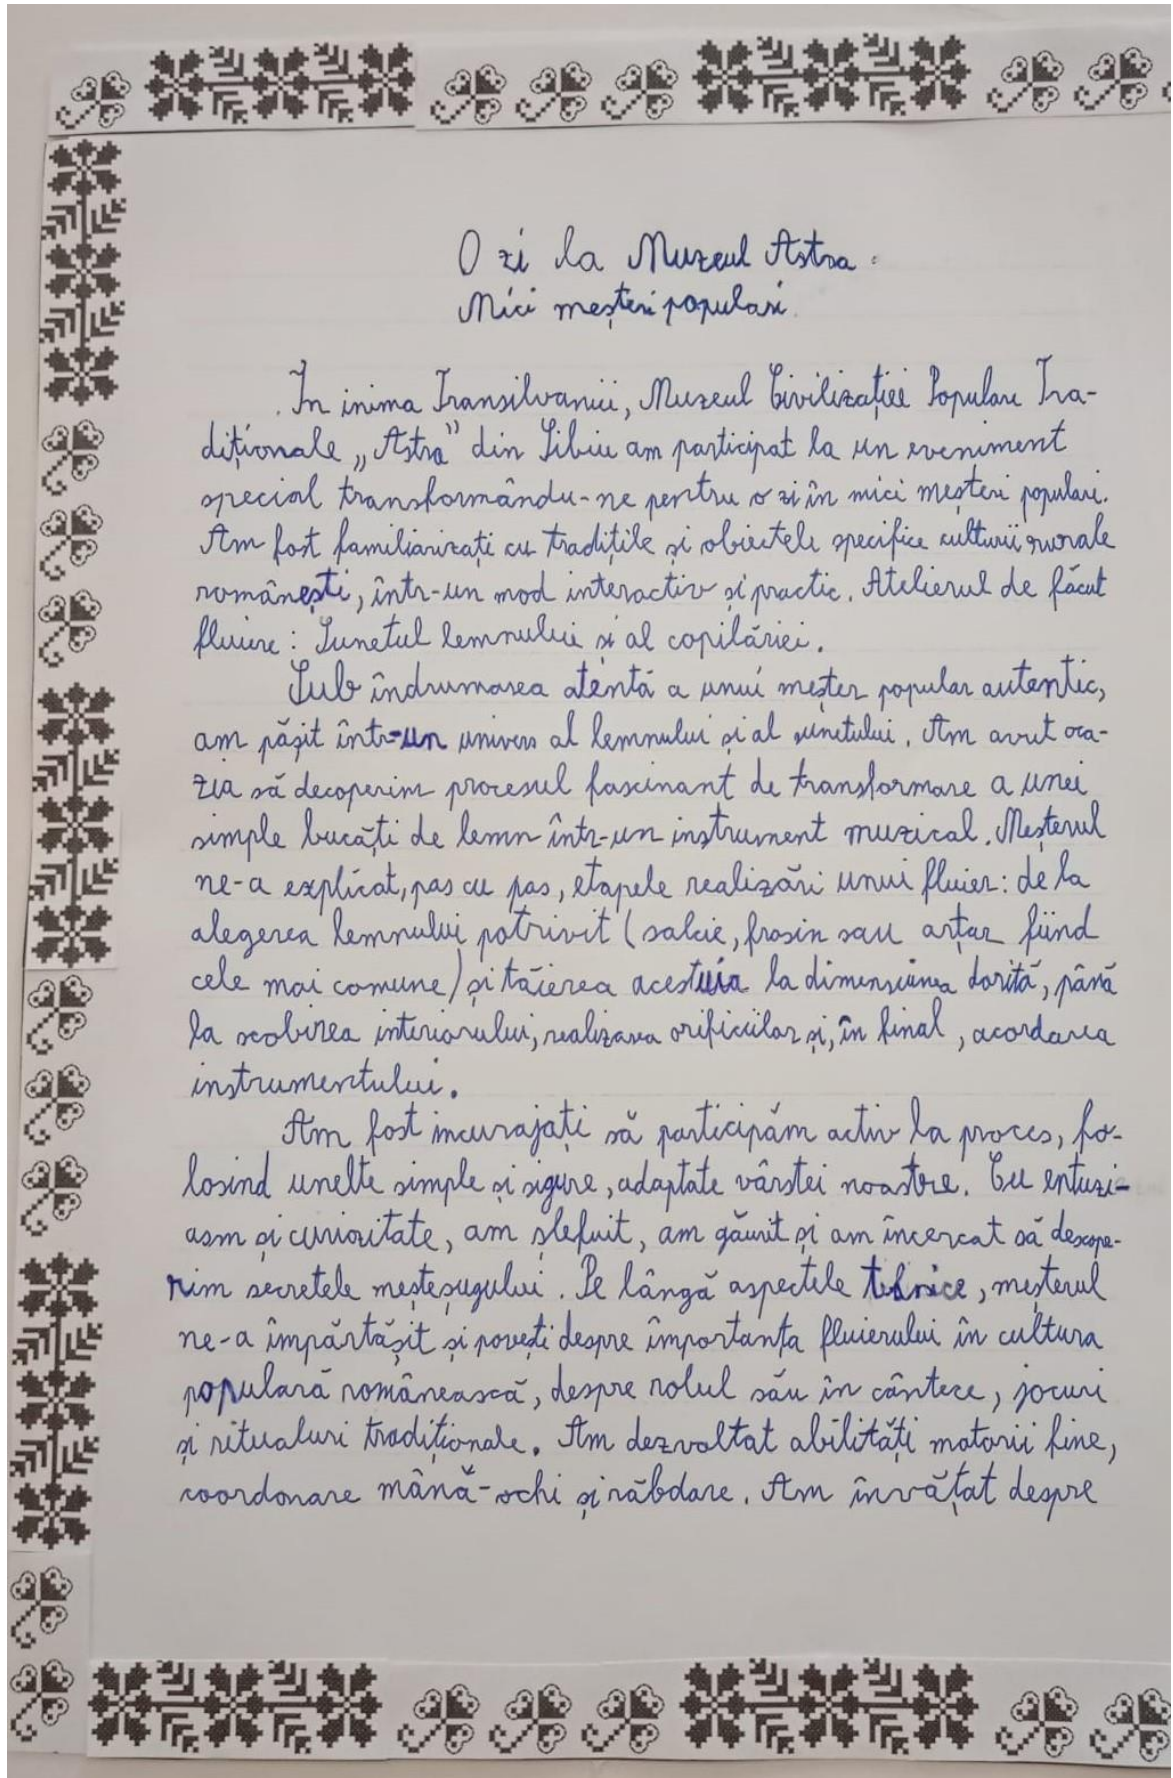 O zi la Muzeul Astra.
Mici meșteri populari.
In inima Transilvaniei, Muzeul Civilizației Populare Tra-
diționale „Astra” din Sibiu am participat la un eveniment
special transformându-ne pentru o zi în mici meșteri populari.
Am fost familiarizați cu tradițile și obiectele specifice culturii rurale
românești, într-un mod interactiv și practic. Atelierul de făcut
fluiere: Sunetul lemnului și al copilăriei.
Sub îndrumarea atentă a unui meșter popular autentic,
am pășit într-un univers al lemnului și al sunetului. Am avut oca-
zia să decoperim procesul fascinant de transformare a unei
simple bucăți de lemn într-un instrument muzical. Meșterul
ne-a explicat, pas cu pas, etapele realizări unui fluier: de la
alegerea lemnului potrivit (salcie, frasin sau arțar fiind
cele mai comune) și tăierea acestuia la dimensiunea dorită, până
la scobirea interiorului, realizarea orificiilor și, în final, acordarea
instrumentului.
Am fost incurajați să participăm activ la proces, fo-
losind unelte simple și sigure, adaptate vârstei noastre. Cu entuzi-
asm și curiozitate, am șlefuit, am găurit și am încercat să descope-
rim secretele meșteșugului. Pe lângă aspectele tehnice, meșterul
ne-a împărtășit și povești despre importanța fluierului în cultura
populară românească, despre rolul său în cântece, jocuri
și ritualuri tradiționale. Am dezvoltat abilități motorii fine,
coordonare mână-ochi și răbdare. Am învățat despre